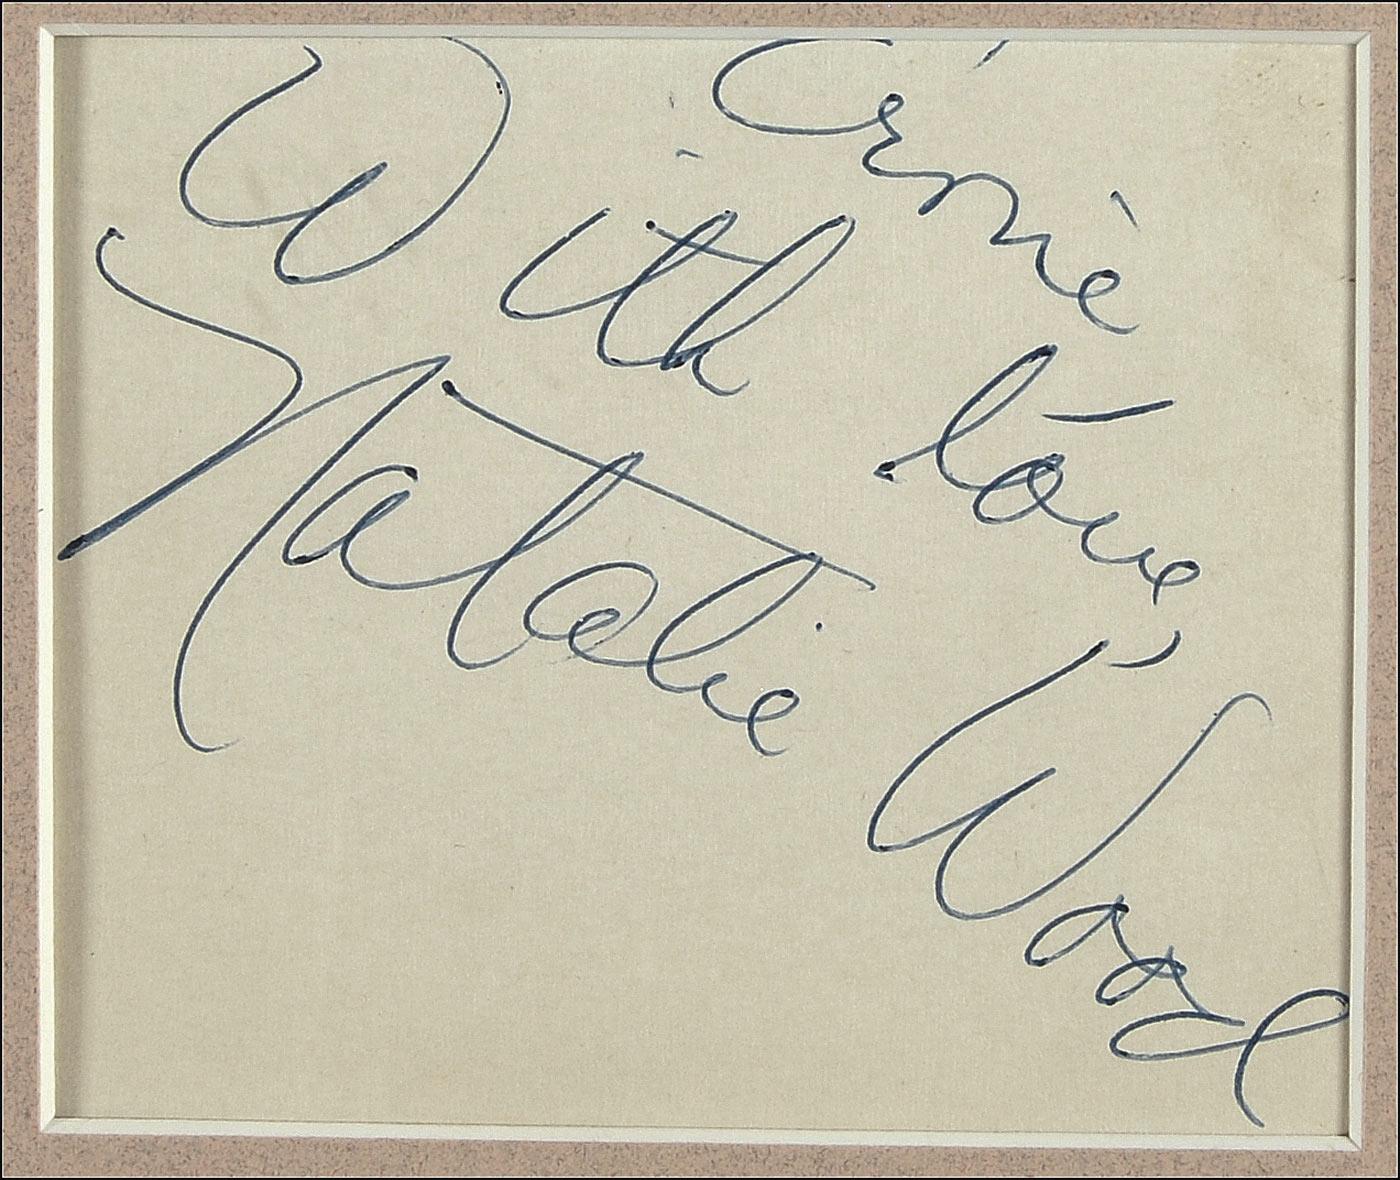 Ernie
With love,
Natalie Wood